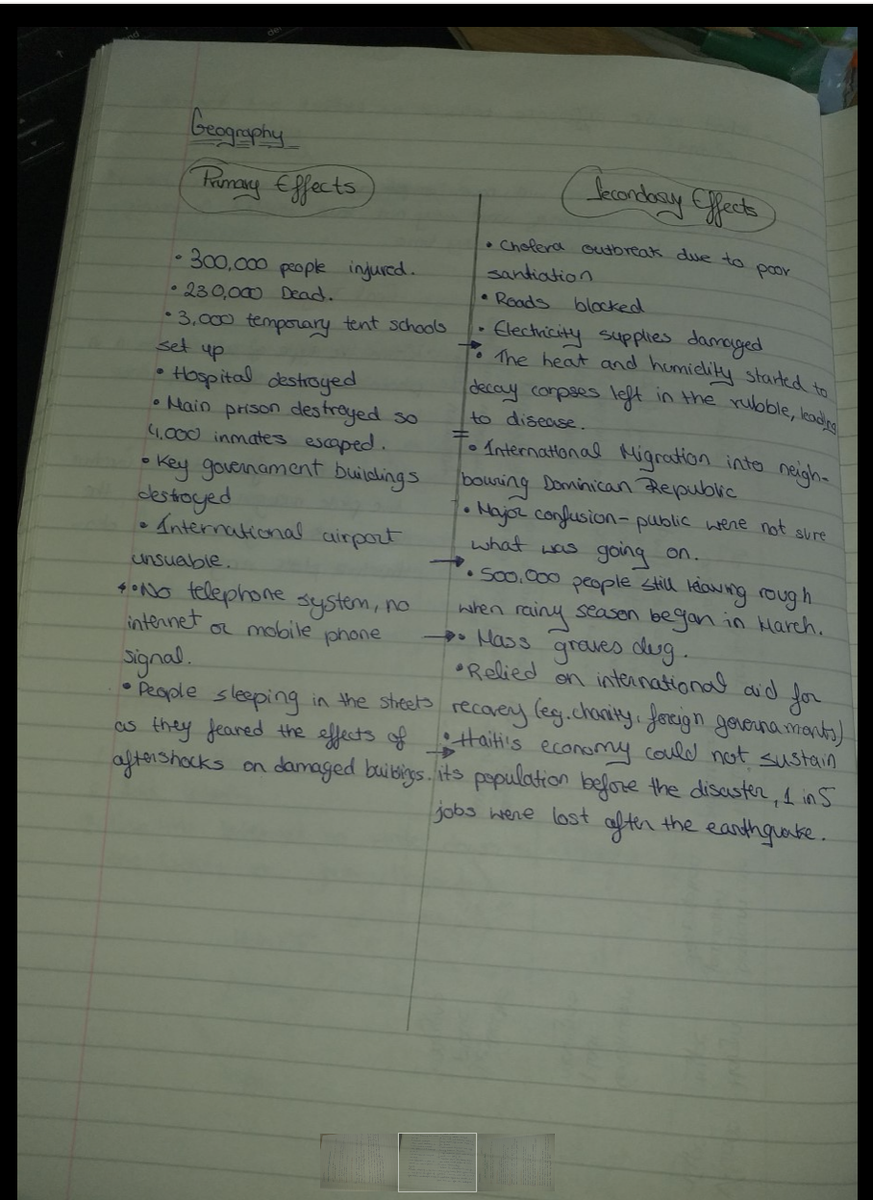 Geography
Primary Effects
• 300,000 people injured.
• 230,000 Dead.
• 3,000 temporary tent schools
set up
• Hospital destroyed
• Main prison destroyed so
4,000 inmates escaped.
• Key governament buildings
destroyed
• International airport
unsuable.
• No telephone system, no
internet or mobile phone
signal.
• People sleeping in the streets
as they feared the effects of
aftershocks on damaged buibings.
Secondary Effects
• Cholera outbreak due to poor
santiation
• Roads blocked
• Electricity supplies damaged
→
• The heat and humidity started to
decay corpses left in the rubble, leading
to disease.
=
• International Migration into neigh-
bouring Dominican Republic
• Major confusion - public were not sure
what was going on.
→
• 500,000 people still rough
when rainy season began in March.
→ • Mass graves dug.
• Relied on international aid for
recovery (eg. charity, foreign governaments)
→ • Haiti's economy could not sustain
its population before the disaster, 1 in 5
jobs were lost after the earthquake.